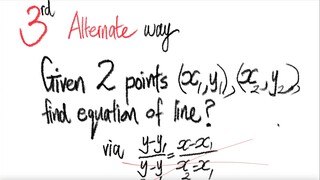 3rd Alternate way
Given 2 points (x₁,y₁),(x₂,y₂)
find equation of line?
via y-y₁/y-y = x-x₁/x₂-x₁